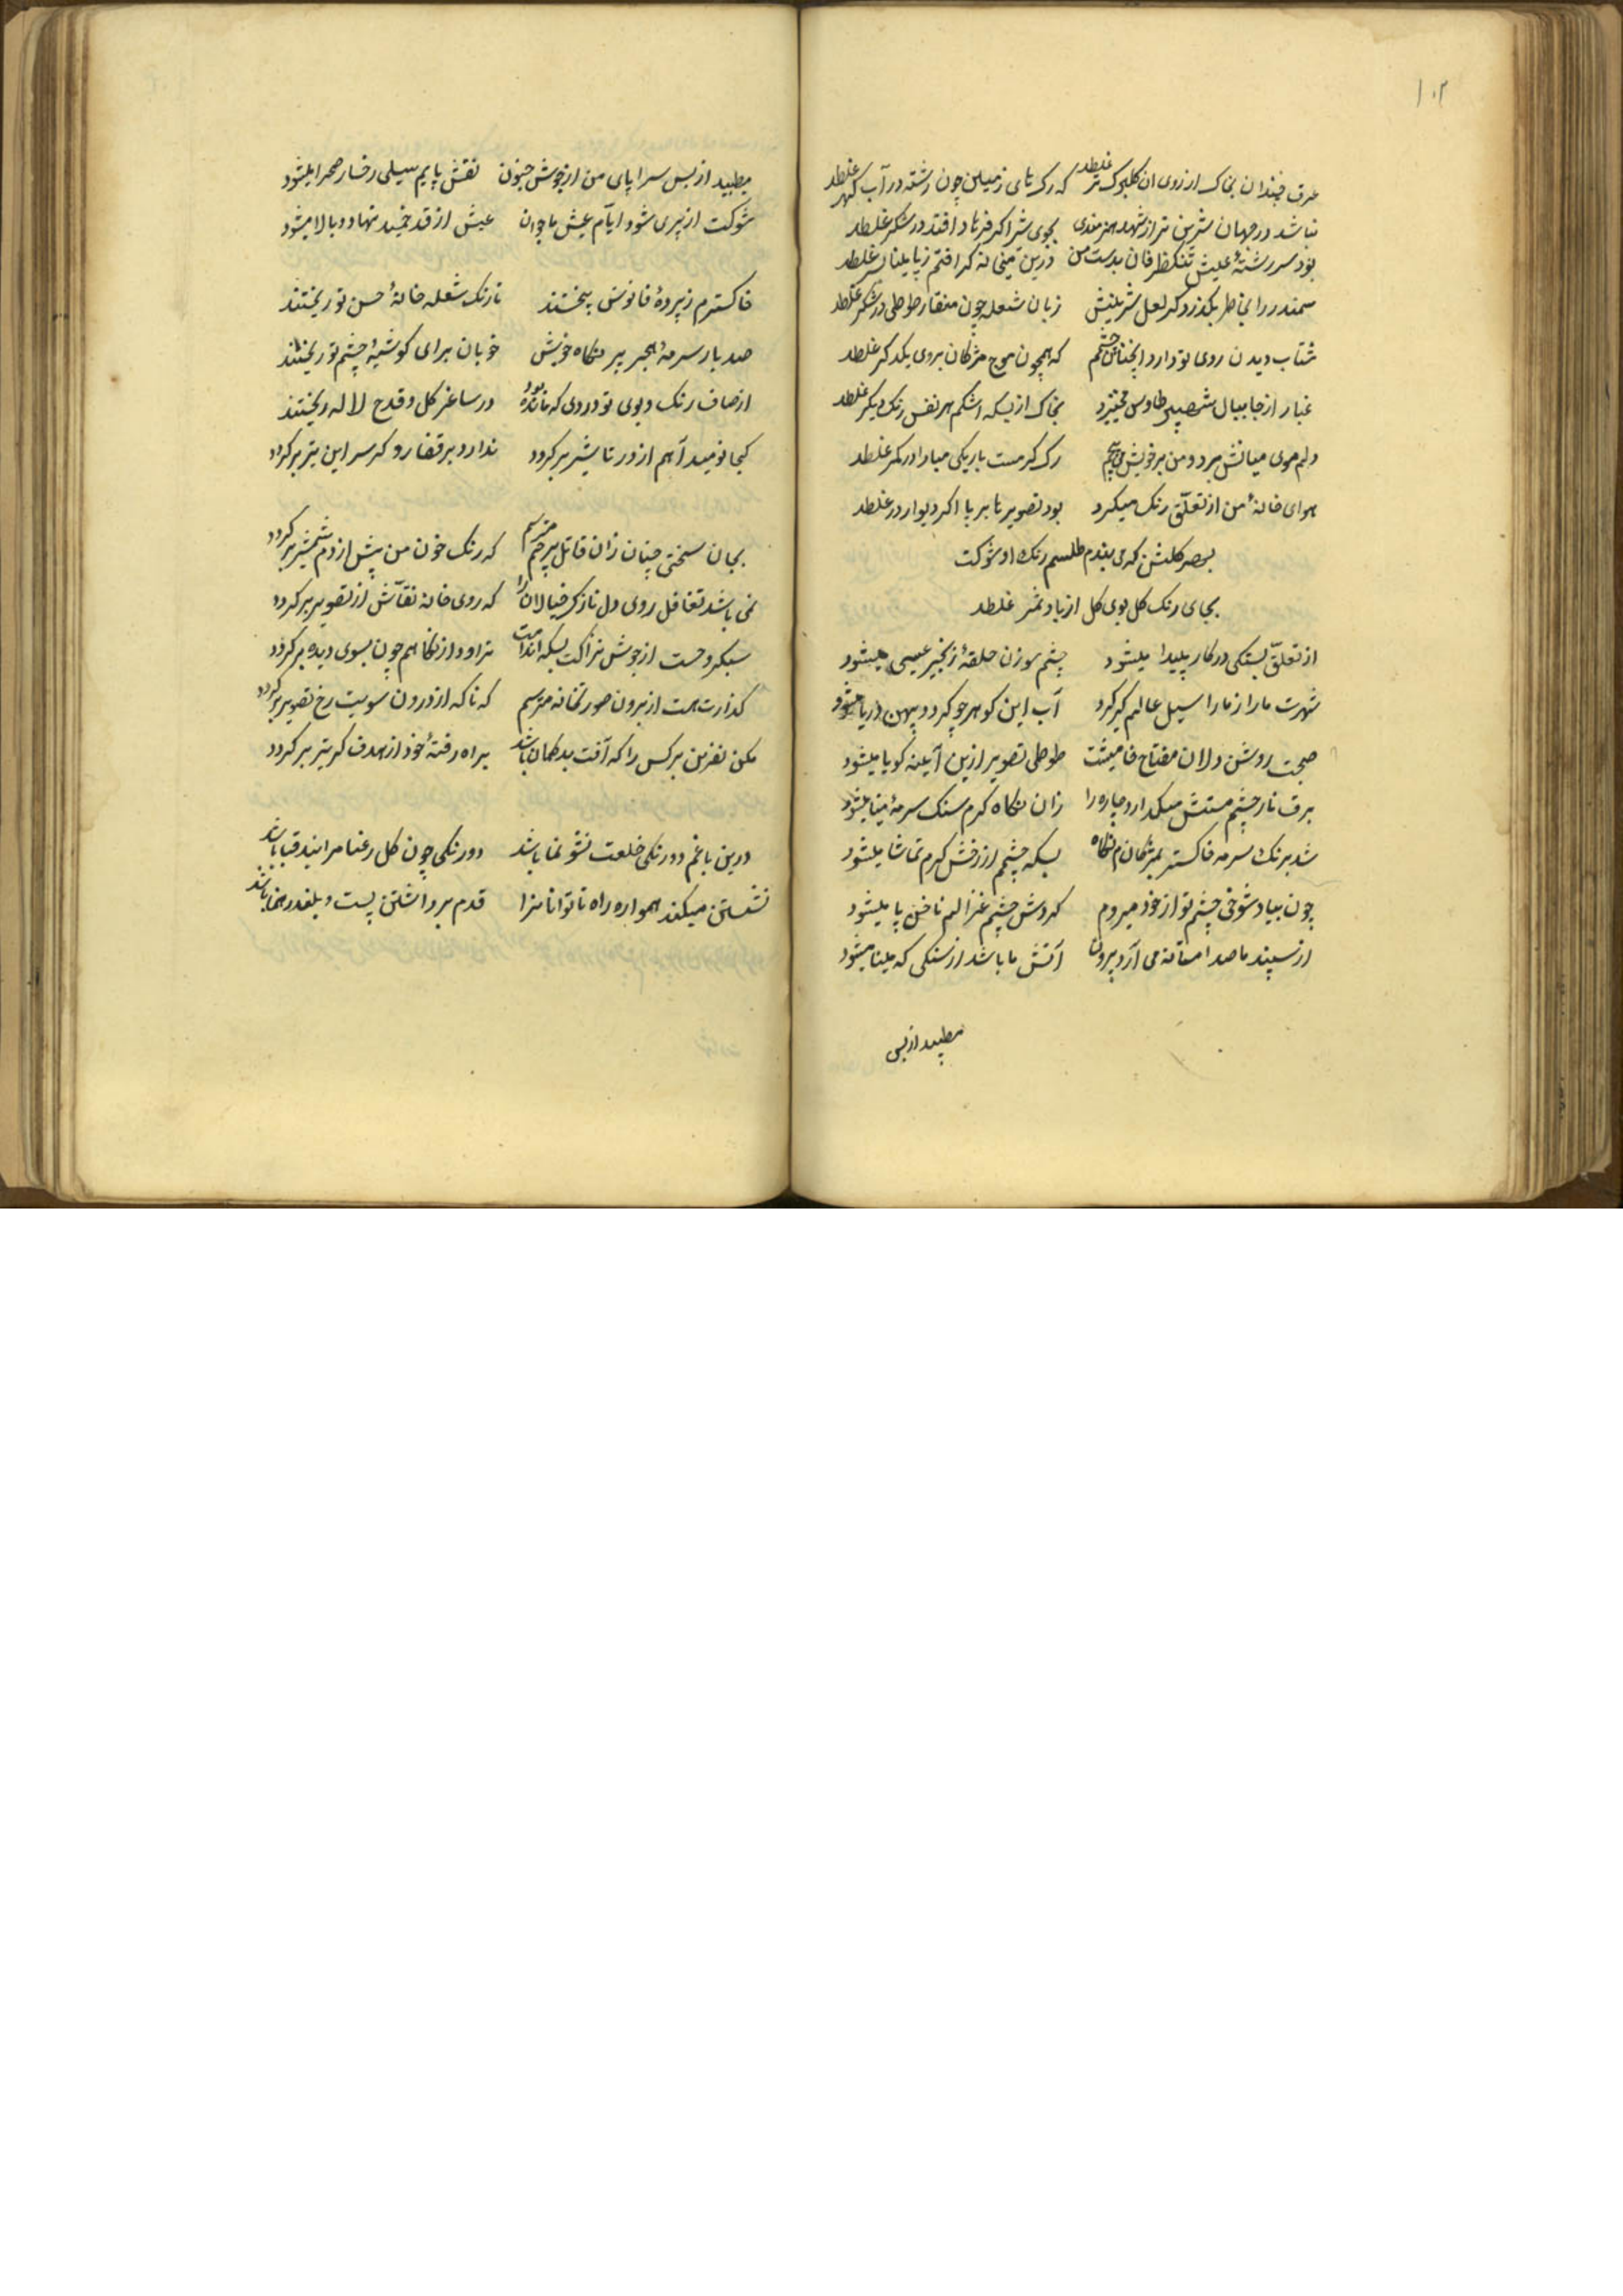 ۱۰۲
عرق چندان بخاک از روی ان کلبرک تر غلطد که رک های زمین چون رشته در آب کهر غلطد
نباشد در جهان شرین تر از شهد هنرمندی بجوی شر اکر فرهاد افتد در شکر غلطد
بود سررشتهٔ عیش تنکظرفان بدست من درین میخانه کر افتم ز پا مینا بسر غلطد
سمندر را بخاطر بکذرد کر لعل شرینش زبان شعله چون منقار طوطی در شکر غلطد
شتاب دیدن روی تو دارد انچنان چشمم که همچون موج مژکان بروی یکدکر غلطد
غبار از جا ببال طاوس میخیزد بخاک از بسکه اشکم هر نفس رنک دیکر غلطد
دلم موی میانش برد و من بر خویش می پیچم رک کرمست باریکی مبادا در کمر غلطد
هوای خانهٔ من از تعلّق رنک میکیرد بود تصویر تا بر پا اکر دیوار در غلطد
بهر کلشن که می بندم طلسم رنک او شوکت
بجای رنک کل بوی کل از باد غلطد
از تعلّق بستکی در کار پیدا میشود چشم سوزن حلقهٔ زنجیر عیسی میشود
شهرت ما را ز ما را سیل عالم کیر کرد آب این کوهر چو کردد پهن دریا میشود
صحبت روشن دلان مفتاح طوطی تصویر ازین آیینه کویا میشود
برق ناز چشم مستش میکدازد چاره را زان نکاه کرم سنک سرمه مینا میشود
شد برنک سرمه خاکستر بمژکانم نکاه بسکه چشمم از رخش کرم تماشا میشود
چون بیاد شوخی چشم تو از خود میروم کردش چشم غزالم ناخن پا میشود
از سپند ما صدا مستانه می آرد برون آتش ما باشد از سنکی که مینا میشود
میطپید از بس
میطپید از بس سراپای من از جوش جنون نقش پایم سیلی رخسار صحرا میشود
شوکت از پیری شود ایّام عیش ما جوان عیش از قد خمید نها دوبالا میشود
خاکسترم ز پردهٔ فانوس بیختند تا رنک شعله خانهٔ حسن تو ریختند
صد بار سرمه بر نکاه خویش خوبان برای کوشهٔ چشم تو ریختند
از صاف رنک و بوی تو دردی که مانده بود در ساغر کل و قدح لاله ریختند
کجا نومید آهم از در تاثیر بر کردد ندارد بر قفا رو کر سر این تیر بر کردد
بجان سختی چنان زان قاتل بیرحم میترسم که رنک خون من پیش از دم شمشیر بر کردد
نمی باشد تغافل روی دل نازک خیالان را که روی خانه نقّاش از تصویر بر کردد
سبکروحست از جوش نزاکت بسکه اندامت تراود از نکاهم چون بسوی دیده بر کردد
کذارت هست از بیرون صورتخانه میترسم که ناکه از درون سویت رخ تصویر بر کردد
مکن نفرین بر کس را که آفت بد کمان باشد براه رفتهٔ خود از هدف کر تیر بر کردد
درین باغم دورنکی خلعت نشو نما باشد دورنکی چون کل رعنا مرا بند قبا باشد
نشستن میکند هموار راه ناتوانان را قدم برداشتن پست و بلند رهنما باشد